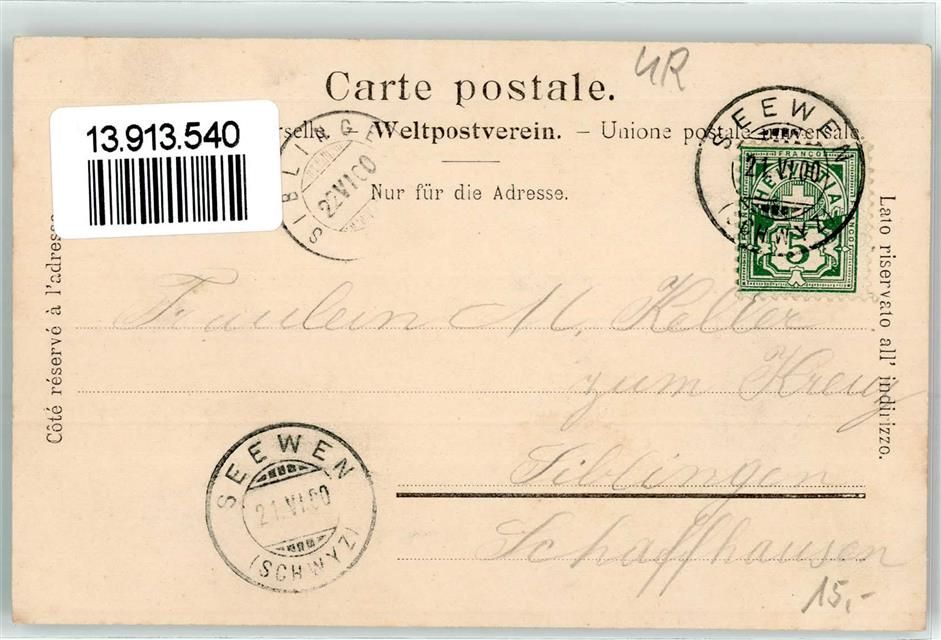 UR
Carte postale.
13.913.540
rselle. – Weltpostverein. – Unione postale universale.
Nur für die Adresse.
SIBLINGE
22.VI.00
SEEWEN
21.VI.00
(SCHWYZ)
FRANCO
HELVETIA
5
Côté réservé à l'adresse
Lato riservato all' indirizzo.
Fraulein M. Keller
zum Kreuz
Siblingen
Schaffhausen
SEEWEN
21.VI.00
(SCHWYZ)
15,-